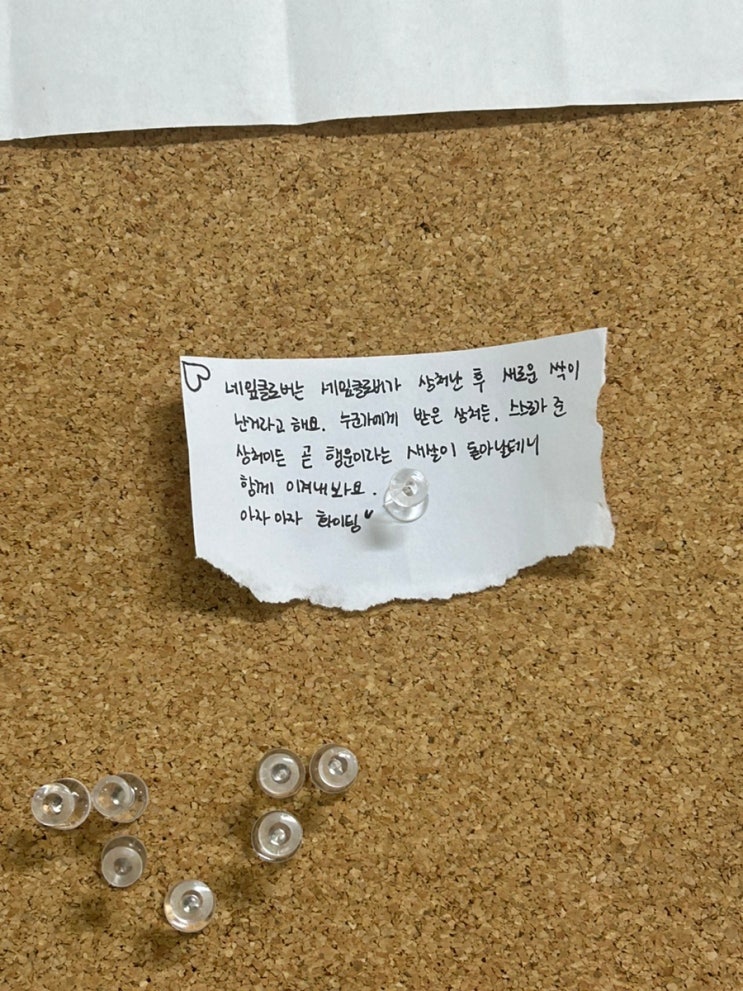 네잎클로버는 네잎클로버가 상처난 후 새로운 싹이
난거라고 해요. 누군가에게 받은 상처든, 스스로가 준
상처이든 곧 행운이라는 새살이 돋아날테니
함께 이겨내봐요.
아자아자 화이팅♥